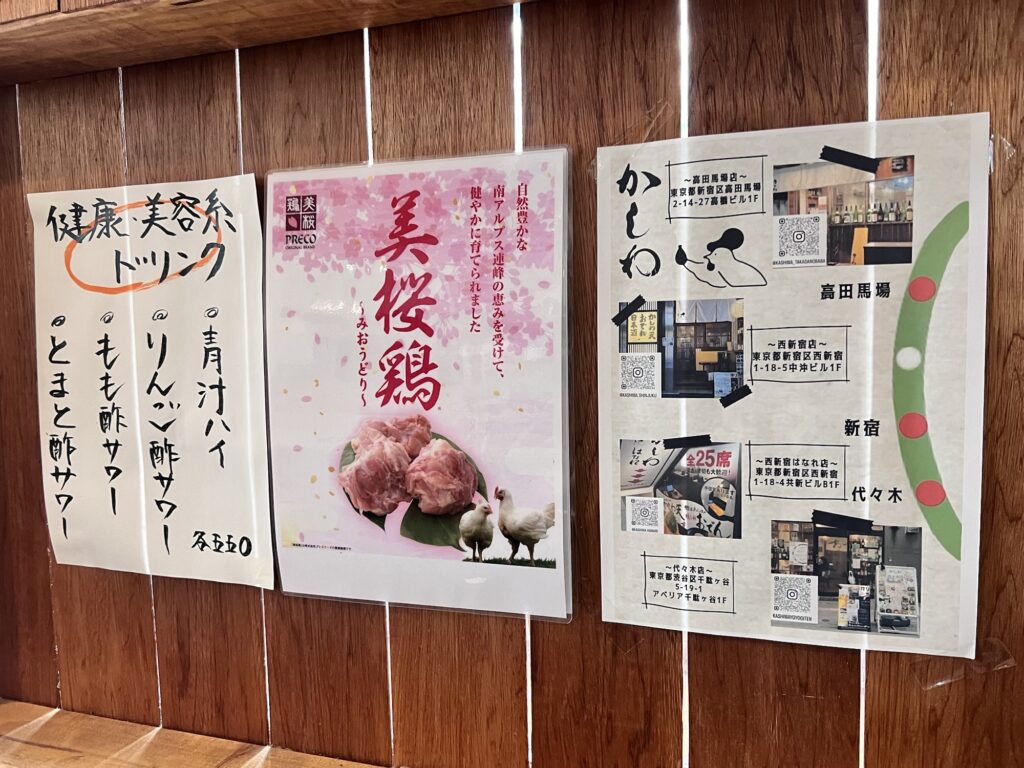 健康・美容系
ドリンク
◎青汁ハイ
◎りんご酢サワー
◎もも酢サワー
◎とまと酢サワー
各五五〇
美桜
鶏
PRECO
ORIGINAL BRAND
自然豊かな
南アルプス連峰の恵みを受けて、
健やかに育てられました
美桜鶏
〜みおうどり〜
かしわ
〜高田馬場店〜
東京都新宿区高田馬場
2-14-27高橋ビル1F
@KASHIWA_TAKADANOBABA
高田馬場
@KASHIWA.SHINJUKU
〜西新宿店〜
東京都新宿区西新宿
1-18-5中沖ビル1F
新宿
かしわ
はなれ
全25席
おでん
〜西新宿はなれ店〜
東京都新宿区西新宿
1-18-4共新ビルB1F
代々木
〜代々木店〜
東京都渋谷区千駄ヶ谷
5-19-1
アベリア千駄ヶ谷1F
KASHIWAYOYOGITEN